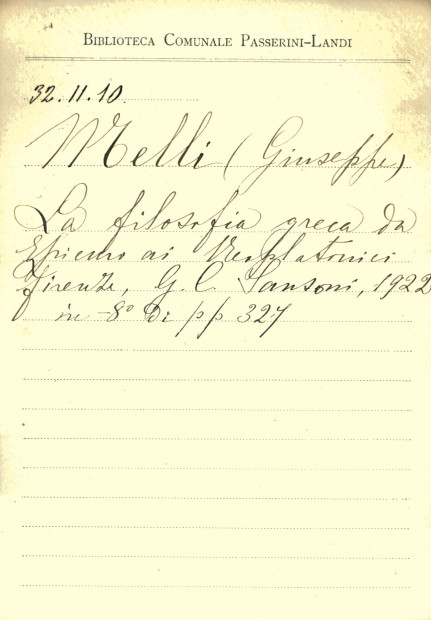 BIBLIOTECA COMUNALE PASSERINI-LANDI
32.11.10
Melli (Giuseppe)
La filosofia greca da
Epicuro ai Neoplatonici
Firenze, G. C. Sansoni, 1922
in -8° di pp 327